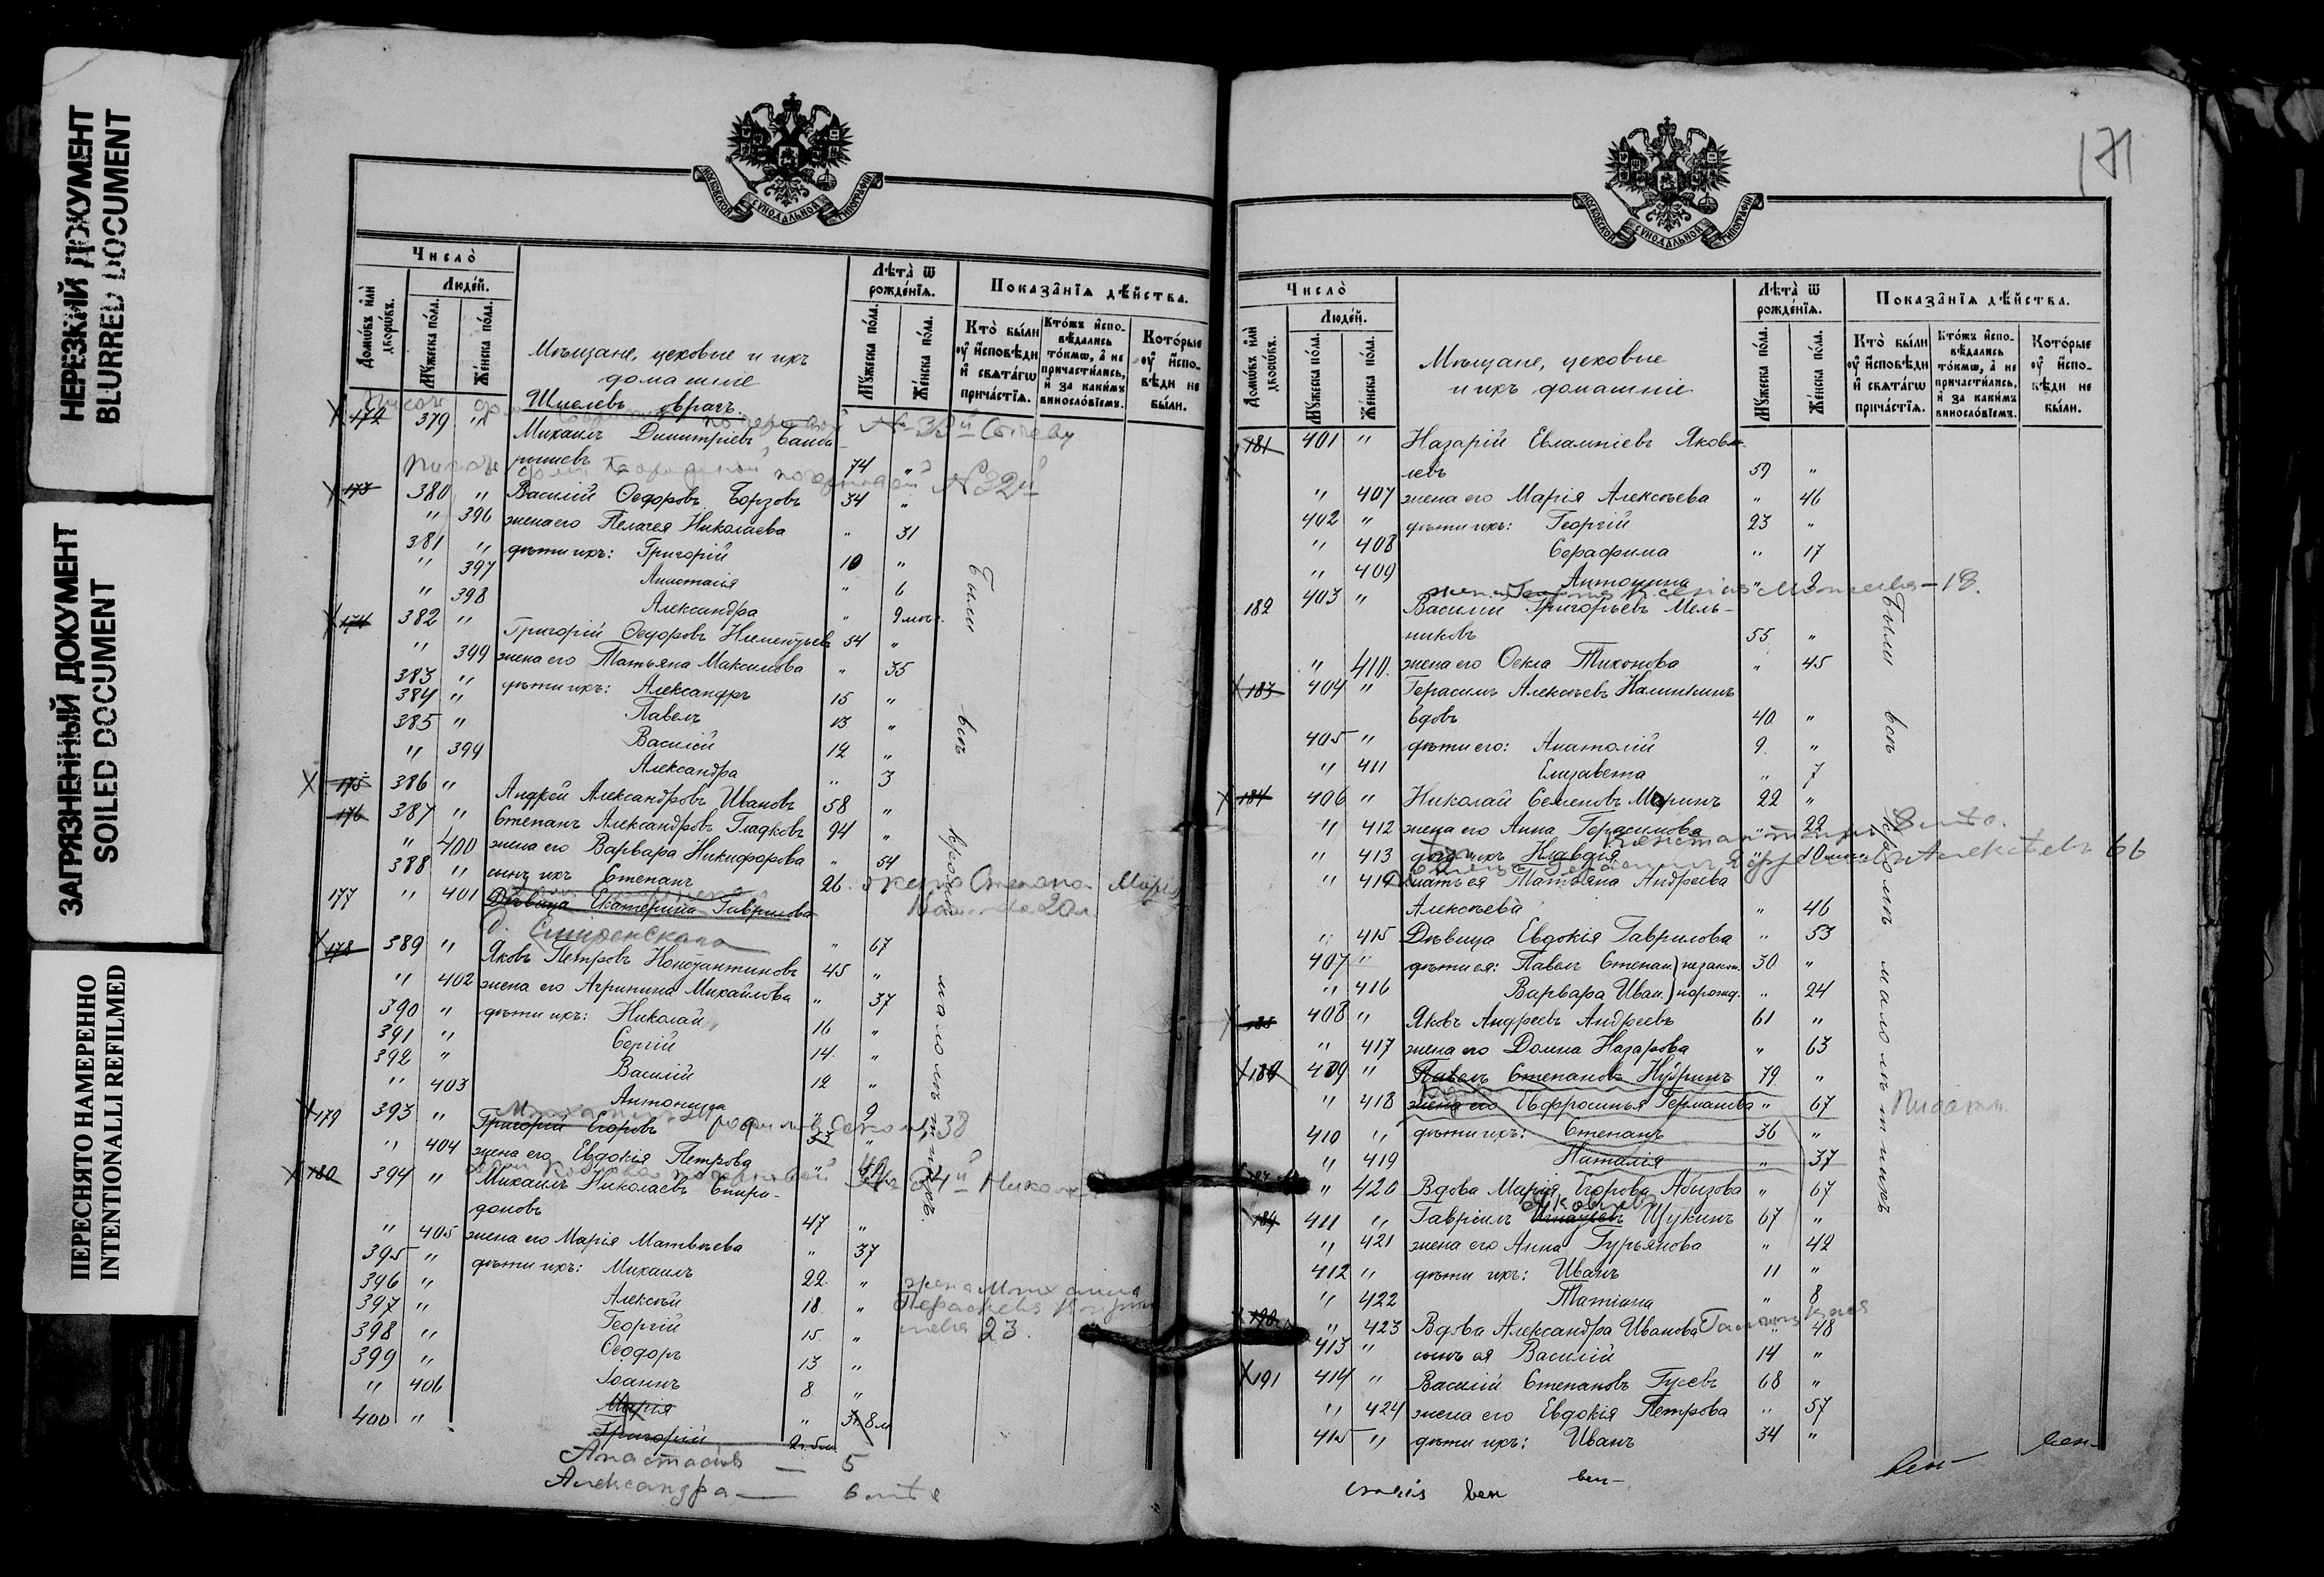 НЕРЕЗКИЙ ДОКУМЕНТ
BLURRED DOCUMENT
ЗАГРЯЗНЕННЫЙ ДОКУМЕНТ
SOILED DOCUMENT
ПЕРЕСНЯТО НАМЕРЕННО
INTENTIONALLI REFILMED
МОСКОВСКОЙ СѴНОДАЛЬНОЙ ТИПОГРАФІИ
Число̀
Людéй.
Домѡ́въ и҆лѝ дво́рѡвъ.
Мꙋ́жеска по́ла.
Же́нска по́ла.
Лѣ́та ѿ рожде́нїѧ.
Мꙋ́жеска по́ла.
Же́нска по́ла.
Показа̑нїѧ дѣ́йства.
Кто̀ бы́ли ᲂу҆ и҆спо́вѣди и҆ свѧта́гѡ прича́стїѧ.
Кто́жъ и҆спо-вѣдались то́кмѡ, а҆ не причасти́лись, и҆ за каки́мъ винослѡ́вїемъ.
Кото́рые ᲂу҆ и҆спо-вѣди не бы́ли.
Мѣщане, цеховые и ихъ
домашніе
Шмелевъ врагъ.
172 379 " Михаилъ Димитріевъ Банды-
рышевъ 74 "
173 380 " Василій Ѳедоровъ Борзовъ 34 "
" 396 жена его Пелагея Николаева " 31
381 " дѣти ихъ: Григорій 10 "
" 397 Анастасія " 6
" 398 Александра " 9 мѣс.
174 382 " Григорій Ѳедоровъ Клементьевъ 54 "
" 399 жена его Татьяна Максимова " 35
383 " дѣти ихъ: Александръ 15 "
384 " Павелъ 13 "
385 " Василій 12 "
" 399 Александра " 3
175 386 " Андрей Александровъ Ивановъ 58 "
176 387 " Степанъ Александровъ Гладковъ 94 "
" 400 жена его Варвара Никифорова " 54
388 " сынъ ихъ Степанъ 26. жена Степана Марія
177 " 401 Дѣвица Екатерина Гаврилова " 67
178 389 " Яковъ Петровъ Константиновъ 45 "
" 402 жена его Агрипина Михайлова " 37
390 " дѣти ихъ: Николай 16 "
391 " Сергій 14 "
392 " Василій 12 "
" 403 Антонина " 9
179 393 " Григорій Егоровъ 53 "
" 404 жена его Евдокія Петрова "
180 394 " Михаилъ Николаевъ Спири-
доновъ 47 "
" 405 жена его Марія Матвѣева " 37
395 " дѣти ихъ: Михаилъ 22 "
396 " Алексѣй 18 "
397 " Георгій 15 "
398 " Ѳеодоръ 13 "
399 " Іоаннъ 8 "
" 406 Марія " 3г. 8м
400 " Григорій 2г. 5м
Анастасія — 5
Александра —
Были всѣ кромѣ малолѣтнихъ.
171
МОСКОВСКОЙ СѴНОДАЛЬНОЙ ТИПОГРАФІИ
Число̀
Людéй.
Домѡ́въ и҆лѝ дво́рѡвъ.
Мꙋ́жеска по́ла.
Же́нска по́ла.
Лѣ́та ѿ рожде́нїѧ.
Мꙋ́жеска по́ла.
Же́нска по́ла.
Показа̑нїѧ дѣ́йства.
Кто̀ бы́ли ᲂу҆ и҆спо́вѣди и҆ свѧта́гѡ прича́стїѧ.
Кто́жъ и҆спо-вѣдались то́кмѡ, а҆ не причасти́лись, и҆ за каки́мъ винослѡ́вїемъ.
Кото́рые ᲂу҆ и҆спо-вѣди не бы́ли.
Мѣщане, цеховые
и ихъ домашніе
181 401 " Назарій Евлампіевъ Яков-
левъ 59 "
" 407 жена его Марія Алексѣева " 46
402 " дѣти ихъ: Георгій 23 "
" 408 Серафима " 17
" 409 Антонина " 2
182 403 " Василій Григорьевъ Мель-
никовъ 55 "
" 410 жена его Ѳекла Тихонова " 45
183 404 " Герасимъ Алексѣевъ Калинкинъ
вдовъ 40 "
405 " дѣти его: Анатолій 9 "
" 411 Елизавета " 7
184 406 " Николай Семеновъ Маринъ 22 "
" 412 жена его Анна Герасимова " 22
" 413 дочь ихъ Клавдія "
" 414 мать ея Татьяна Андреева
Алексѣева " 46
" 415 Дѣвица Евдокія Гаврилова " 53
407 " дѣти ея: Павелъ Степан.) незакон. 30 "
" 416 Варвара Иван.) норожд. " 24
185 408 " Яковъ Андреевъ Андреевъ 61 "
" 417 жена его Домна Назарова " 63
186 409 " Павелъ Степановъ Кудринъ 79 "
" 418 жена его Евфросинья Германова " 67
410 " дѣти ихъ: Степанъ 36 "
" 419 Наталія " 37
187 " 420 Вдова Марія Егорова Абызова " 67
189 411 " Гавріилъ Игнатьевъ Щукинъ 67 "
" 421 жена его Анна Гурьянова " 42
412 " дѣти ихъ: Иванъ 11 "
" 422 Татіана " 8
190 " 423 Вдова Александра Иванова " 48
413 " сынъ ея Василій 14 "
191 414 " Василій Степановъ Гусевъ 68 "
" 424 жена его Евдокія Петрова " 57
415 " дѣти ихъ: Иванъ 34 "
Были всѣ кромѣ малолѣтнихъ